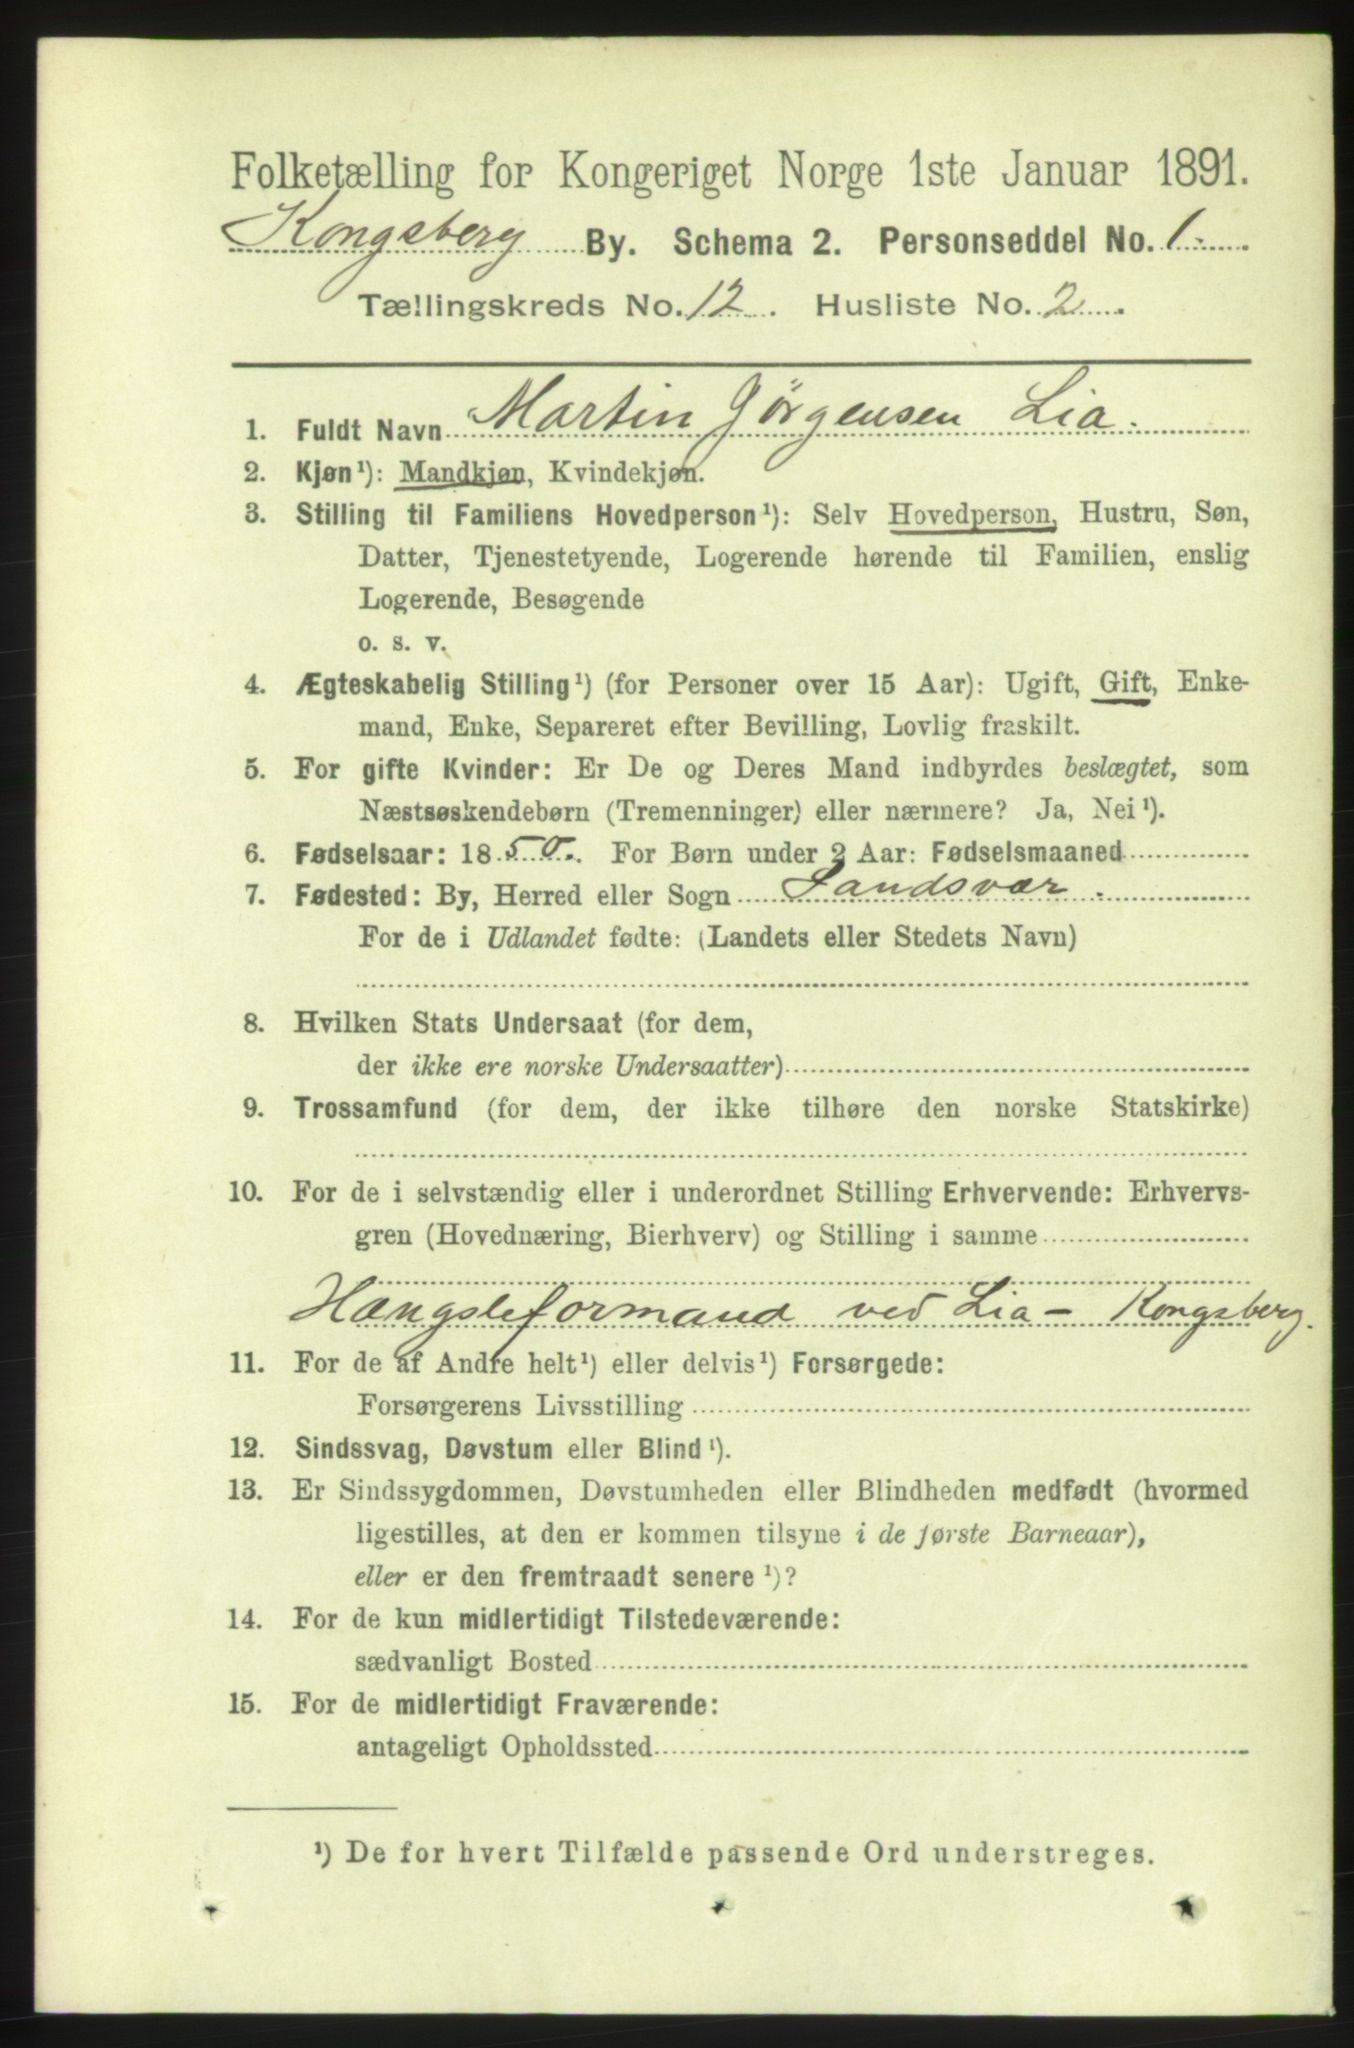 Folketælling for Kongeriget Norge 1ste Januar 1891.
Kongsberg By. Schema 2. Personseddel No. 1.
Tællingskreds No. 12. Husliste No. 2.
1. Fuldt Navn Martin Jørgensen Lia.
2. Kjøn¹): Mandkjøn, Kvindekjøn.
3. Stilling til Familiens Hovedperson¹): Selv Hovedperson, Hustru, Søn,
Datter, Tjenestetyende, Logerende hørende til Familien, enslig
Logerende, Besøgende
o. s. v.
4. Ægteskabelig Stilling¹) (for Personer over 15 Aar): Ugift, Gift, Enke-
mand, Enke, Separeret efter Bevilling, Lovlig fraskilt.
5. For gifte Kvinder: Er De og Deres Mand indbyrdes beslægtet, som
Næstsøskendebørn (Tremenninger) eller nærmere? Ja, Nei¹).
6. Fødselsaar: 1850. For Børn under 2 Aar: Fødselsmaaned
7. Fødested: By, Herred eller Sogn Sandsvær.
For de i Udlandet fødte: (Landets eller Stedets Navn)
8. Hvilken Stats Undersaat (for dem,
der ikke ere norske Undersaatter)
9. Trossamfund (for dem, der ikke tilhøre den norske Statskirke)
10. For de i selvstændig eller i underordnet Stilling Erhvervende: Erhvervs-
gren (Hovednæring, Bierhverv) og Stilling i samme
Hængsleformand ved Lia - Kongsberg.
11. For de af Andre helt¹) eller delvis¹) Forsørgede:
Forsørgerens Livsstilling
12. Sindssvag, Døvstum eller Blind¹).
13. Er Sindssygdommen, Døvstumheden eller Blindheden medfødt (hvormed
ligestilles, at den er kommen tilsyne i de første Barneaar),
eller er den fremtraadt senere¹)?
14. For de kun midlertidigt Tilstedeværende:
sædvanligt Bosted
15. For de midlertidigt Fraværende:
antageligt Opholdssted
¹) De for hvert Tilfælde passende Ord understreges.